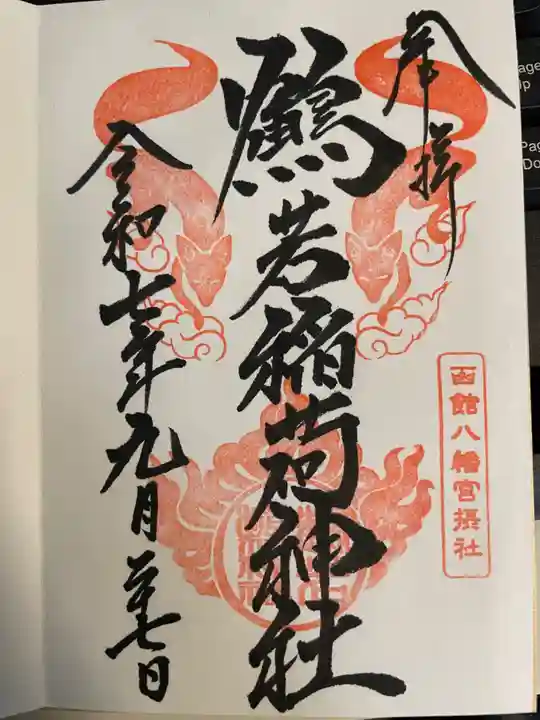 奉拝
函館八幡宮摂社
鶴若稲荷神社
令和七年九月二十七日